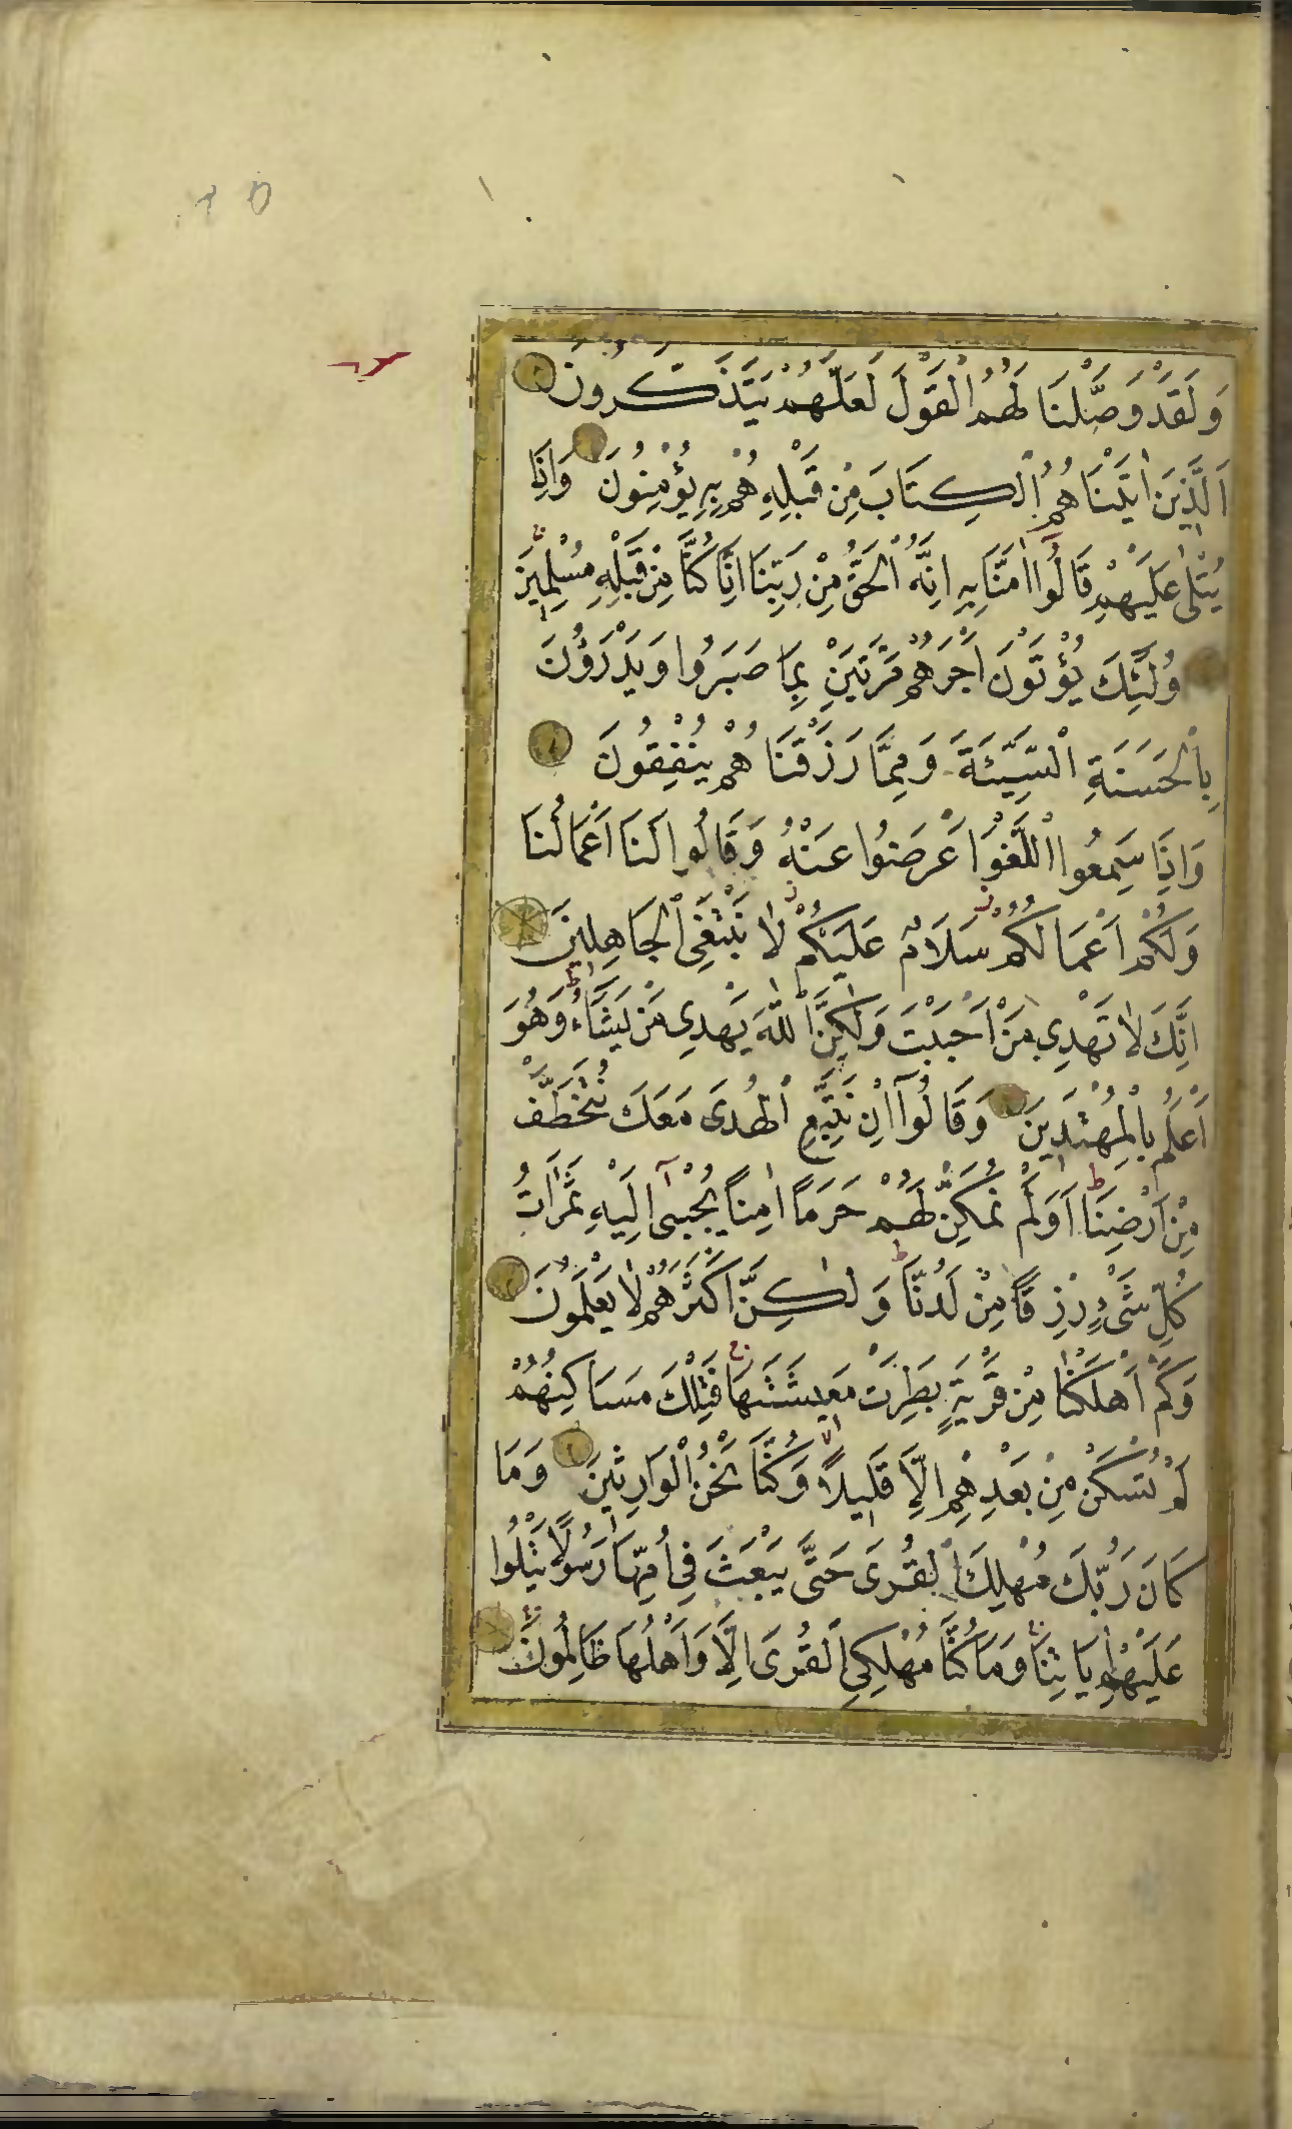 وَلَقَدْ وَصَّلْنَا لَهُمُ الْقَوْلَ لَعَلَّهُمْ يَتَذَكَّرُونَ
اَلَّذِينَ اٰتَيْنَاهُمُ الْكِتَابَ مِنْ قَبْلِهِ هُمْ بِهِ يُؤْمِنُونَ وَاِذَا
يُتْلٰى عَلَيْهِمْ قَالُوا اٰمَنَّا بِهِ اِنَّهُ الْحَقُّ مِنْ رَبِّنَا اِنَّا كُنَّا مِنْ قَبْلِهِ مُسْلِمِينَ
وُلٰئِكَ يُؤْتَوْنَ اَجْرَهُمْ مَرَّتَيْنِ بِمَا صَبَرُوا وَيَدْرَؤُنَ
بِالْحَسَنَةِ السَّيِّئَةَ وَمِمَّا رَزَقْنَاهُمْ يُنْفِقُونَ
وَاِذَا سَمِعُوا اللَّغْوَ اَعْرَضُوا عَنْهُ وَقَالُوا لَنَا اَعْمَالُنَا
وَلَكُمْ اَعْمَالُكُمْ سَلَامٌ عَلَيْكُمْ لَا نَبْتَغِي الْجَاهِلِينَ
اِنَّكَ لَا تَهْدِي مَنْ اَحْبَبْتَ وَلٰكِنَّ اللّٰهَ يَهْدِي مَنْ يَشَاءُ وَهُوَ
اَعْلَمُ بِالْمُهْتَدِينَ وَقَالُوا اِنْ نَتَّبِعِ الْهُدَى مَعَكَ نُتَخَطَّفْ
مِنْ اَرْضِنَا اَوَلَمْ نُمَكِّنْ لَهُمْ حَرَمًا اٰمِنًا يُجْبٰى اِلَيْهِ ثَمَرَاتُ
كُلِّ شَيْءٍ رِزْقًا مِنْ لَدُنَّا وَلٰكِنَّ اَكْثَرَهُمْ لَا يَعْلَمُونَ
وَكَمْ اَهْلَكْنَا مِنْ قَرْيَةٍ بَطِرَتْ مَعِيشَتَهَا فَتِلْكَ مَسَاكِنُهُمْ
لَمْ تُسْكَنْ مِنْ بَعْدِهِمْ اِلَّا قَلِيلًا وَكُنَّا نَحْنُ الْوَارِثِينَ وَمَا
كَانَ رَبُّكَ مُهْلِكَ الْقُرَى حَتَّى يَبْعَثَ فِي اُمِّهَا رَسُولًا يَتْلُوا
عَلَيْهِمْ اٰيَاتِنَا وَمَا كُنَّا مُهْلِكِي الْقُرَى اِلَّا وَاَهْلُهَا ظَالِمُونَ